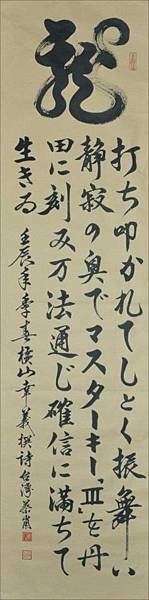 龍
打ち叩かれてしとく振舞い
静寂の奥でマスターキーⅢを丹
田に刻み万法通じ確信に満ちて
生きる
壬辰年季春横山幸義撰詩台湾恭甫